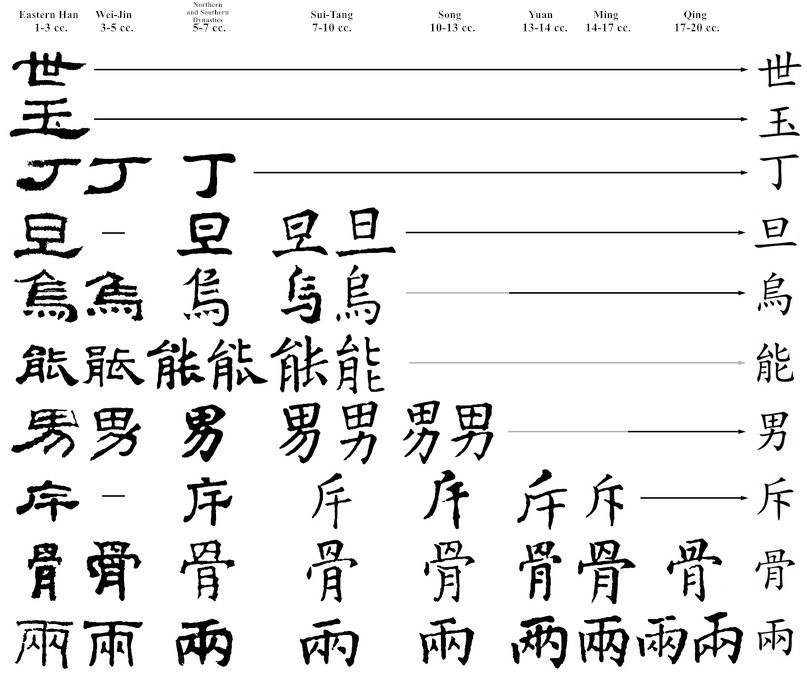 Eastern Han Wei-Jin Northern and Southern Dynasties Sui-Tang Song Yuan Ming Qing
1-3 cc. 3-5 cc. 5-7 cc. 7-10 cc. 10-13 cc. 13-14 cc. 14-17 cc. 17-20 cc.
世 世
玉 玉
丁 丁 丁 丁
旦 — 旦 旦 旦 旦
烏 烏 烏 烏 烏 烏
能 能 能 能 能 能 能
男 男 男 男 男 男 男 男
斥 — 斥 斥 斥 斥 斥 斥
骨 骨 骨 骨 骨 骨 骨 骨 骨
兩 兩 兩 兩 兩 兩 兩 兩 兩 兩